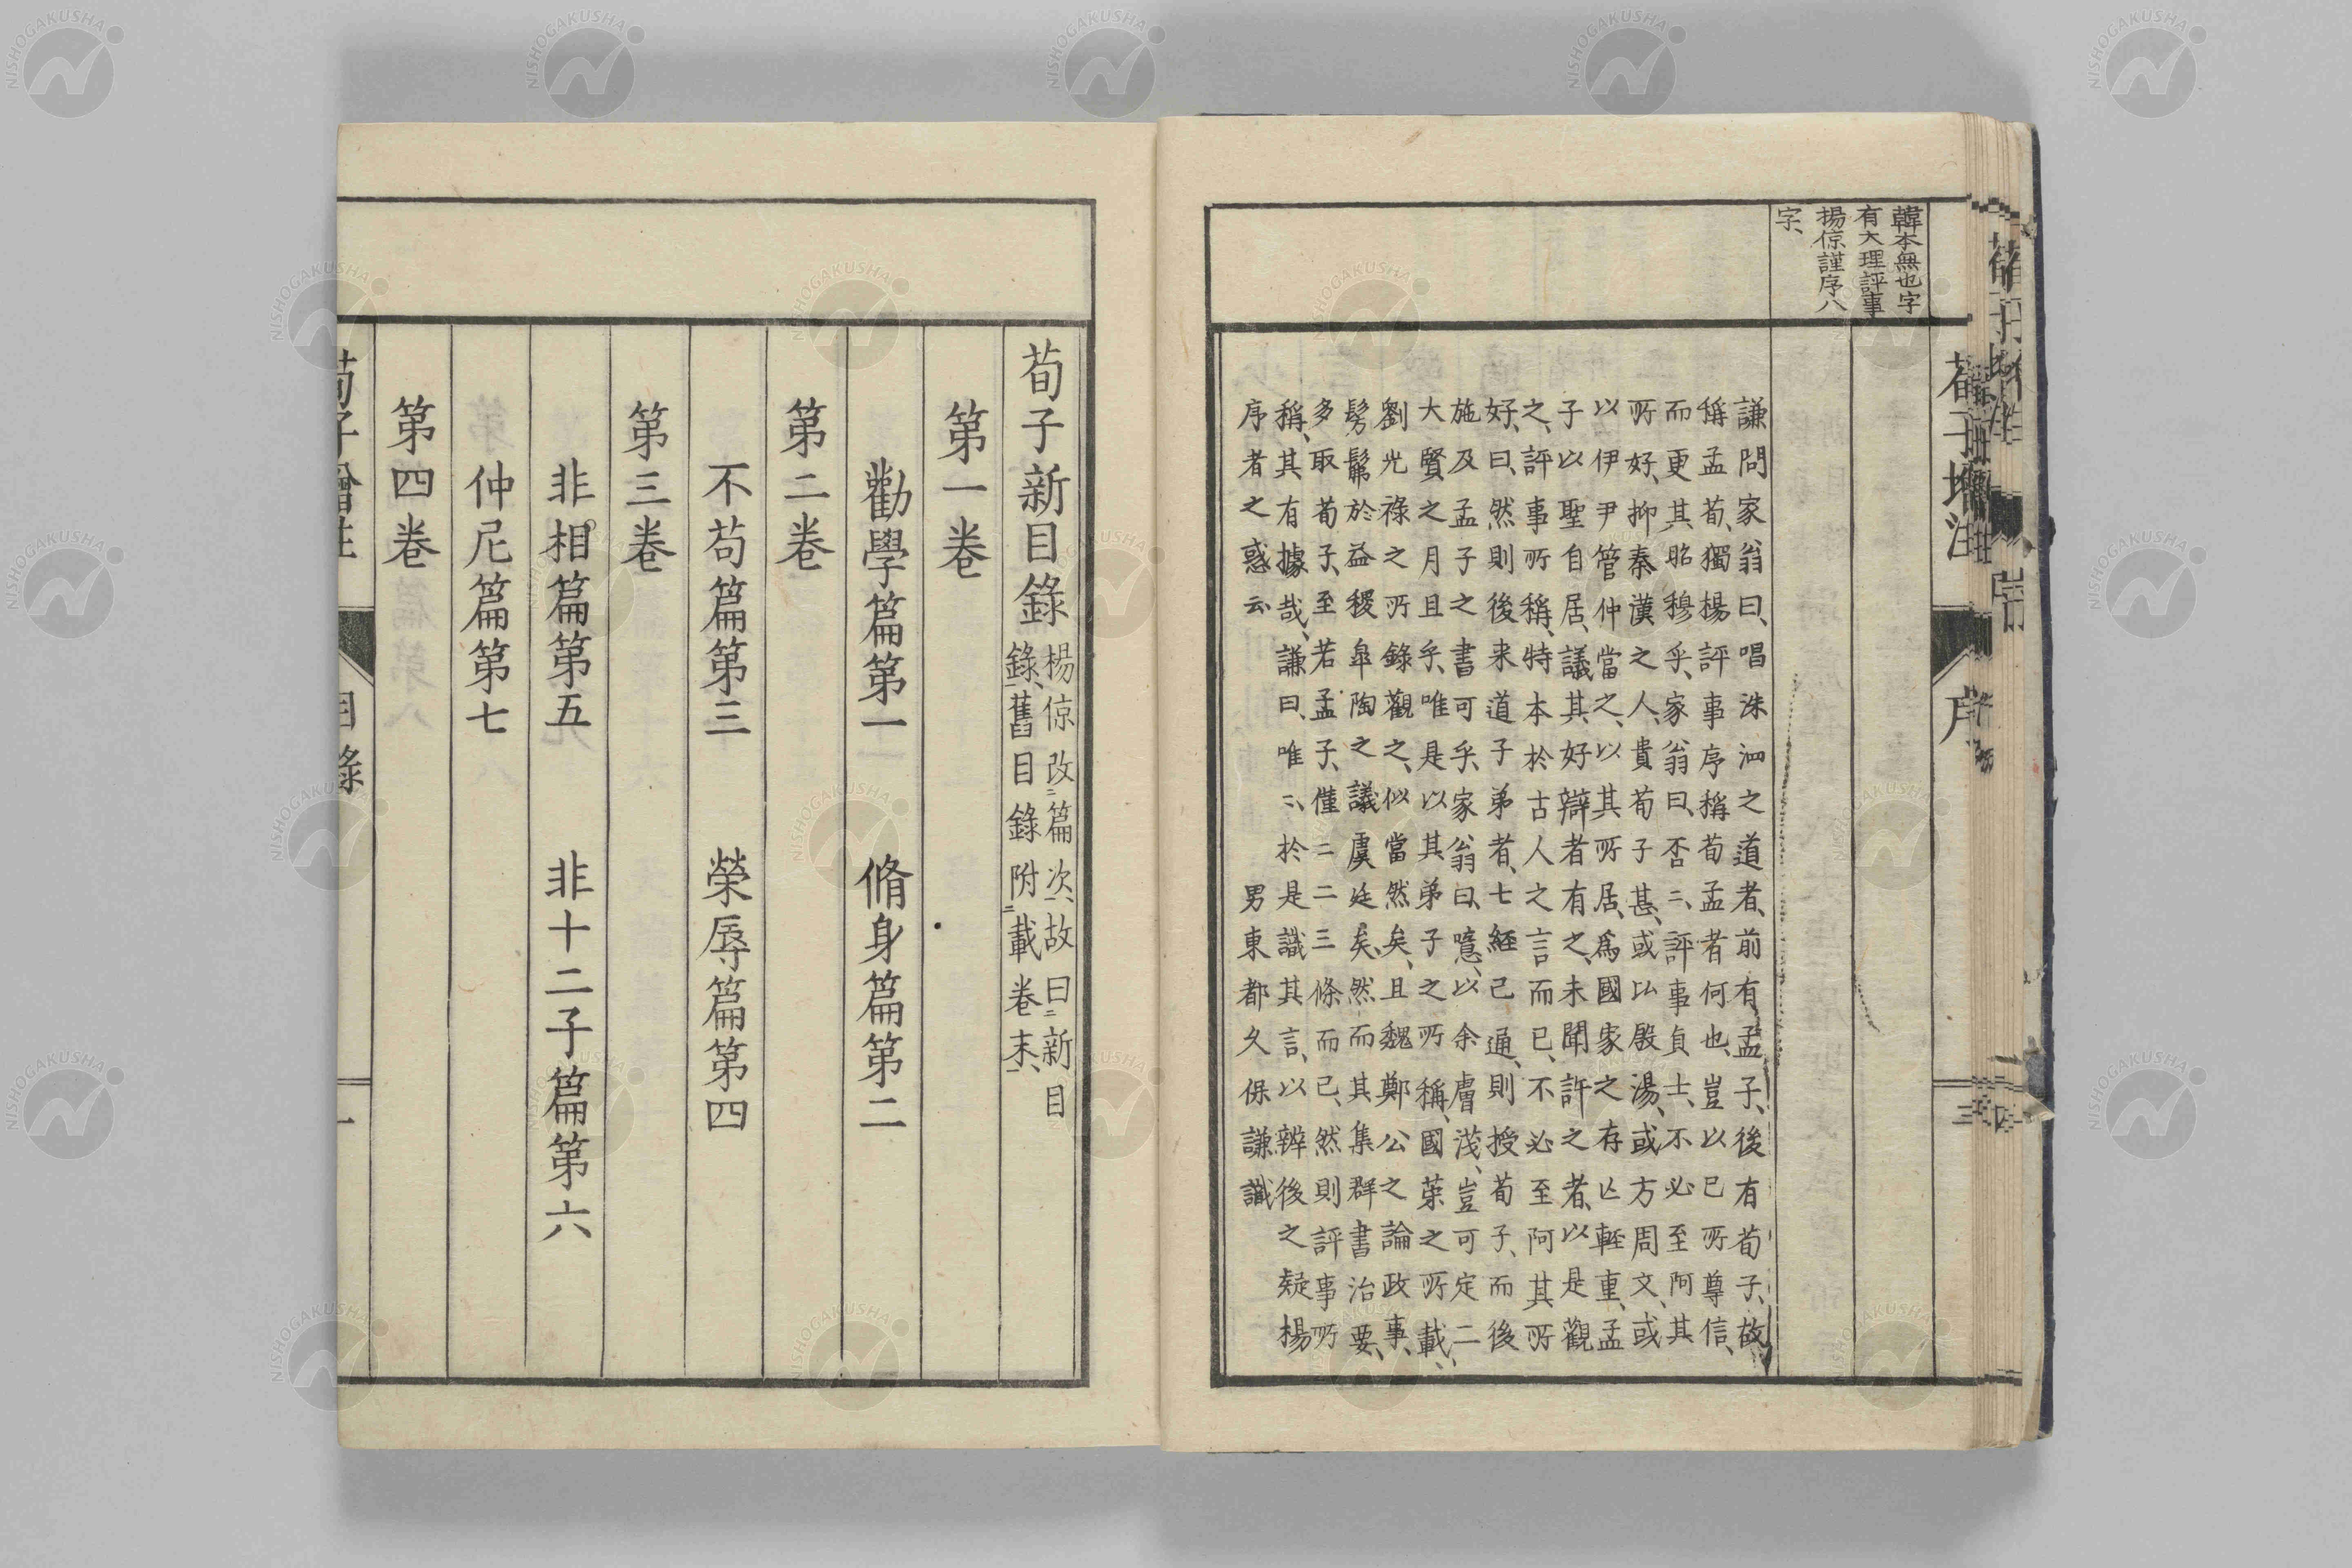 韓本無也字
有大理評事
楊倞謹序八
字、
謙問家翁曰、唱洙泗之道者、前有孟子、後有荀子、故
稱孟荀、獨楊評事序稱荀孟者何也、豈以已所尊信、
而更其昭穆乎、家翁曰、否〻、評事貞士、不必至阿其
所好、抑秦漢之人、貴荀子甚、或以殷湯、或方周文、或
以伊尹管仲當之、以其所居、爲國家之存亾輕重、孟
子以聖自居、議其好辯者有之、未聞許之者、以是觀
之、評事所稱、特本於古人之言而已、不必至阿其所
好、曰、然則後来道子弟者、七經已通、則授荀子、而後
施及孟子之書可乎、家翁曰、噫、以余膚淺、豈可定二
大賢之月且乎、唯是以其弟子之所稱、國策之所載、
劉光祿之所錄觀之、似當然矣、且魏鄭公之論政事、
髣髴於益稷皐陶之議虞廷矣、然而其集群書治要、
多取荀子、至若孟子、僅〻二三條而已、然則評事所
稱、其有據哉、謙曰、唯〻、於是識其言、以辨後之疑楊
序者之惑云
男東都久保謙識
荀子增注
序
荀子新目錄
楊倞改篇次、故曰新目
錄、舊目錄附載卷末、
第一卷
勸學篇第一
脩身篇第二
第二卷
不苟篇第三
榮辱篇第四
第三卷
非相篇第五
非十二子篇第六
仲尼篇第七
第四卷
荀子增注
目錄
一